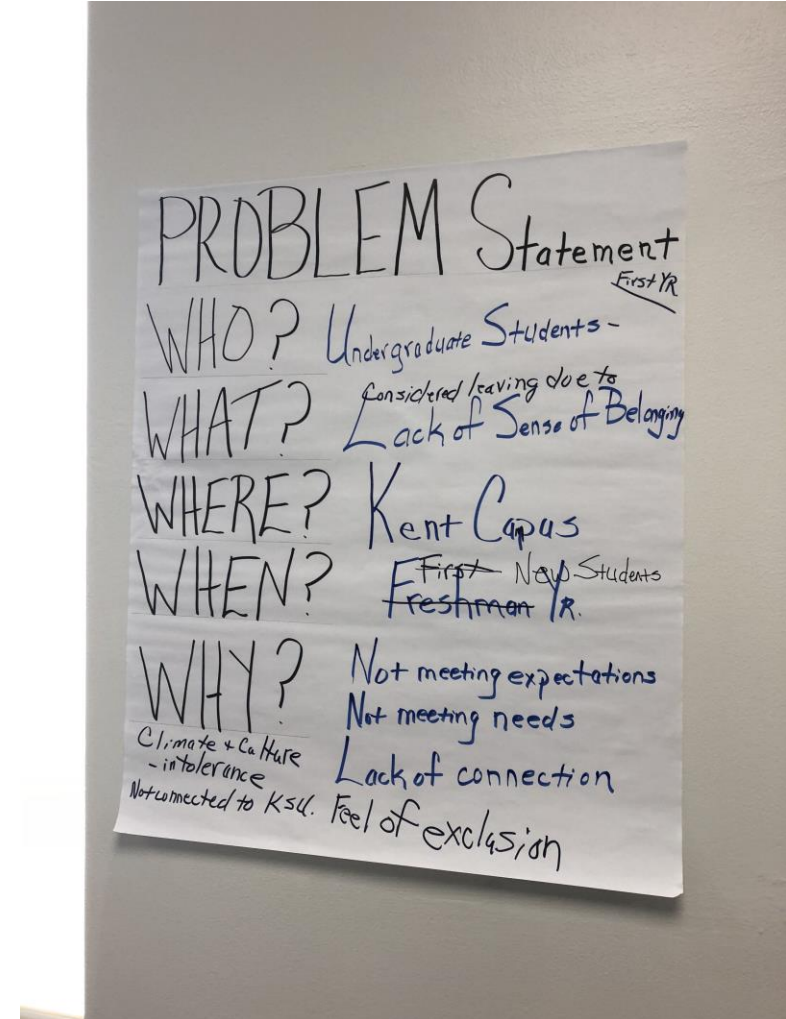 PROBLEM Statement
First YR
WHO? Undergraduate Students -
Considered leaving due to
WHAT? Lack of Sense of Belonging
WHERE? Kent Capus
First New Students
WHEN? Freshman YR.
WHY? Not meeting expectations
Not meeting needs
Climate + Culture
- intolerance
Lack of connection
Not connected to KSU. Feel of exclusion